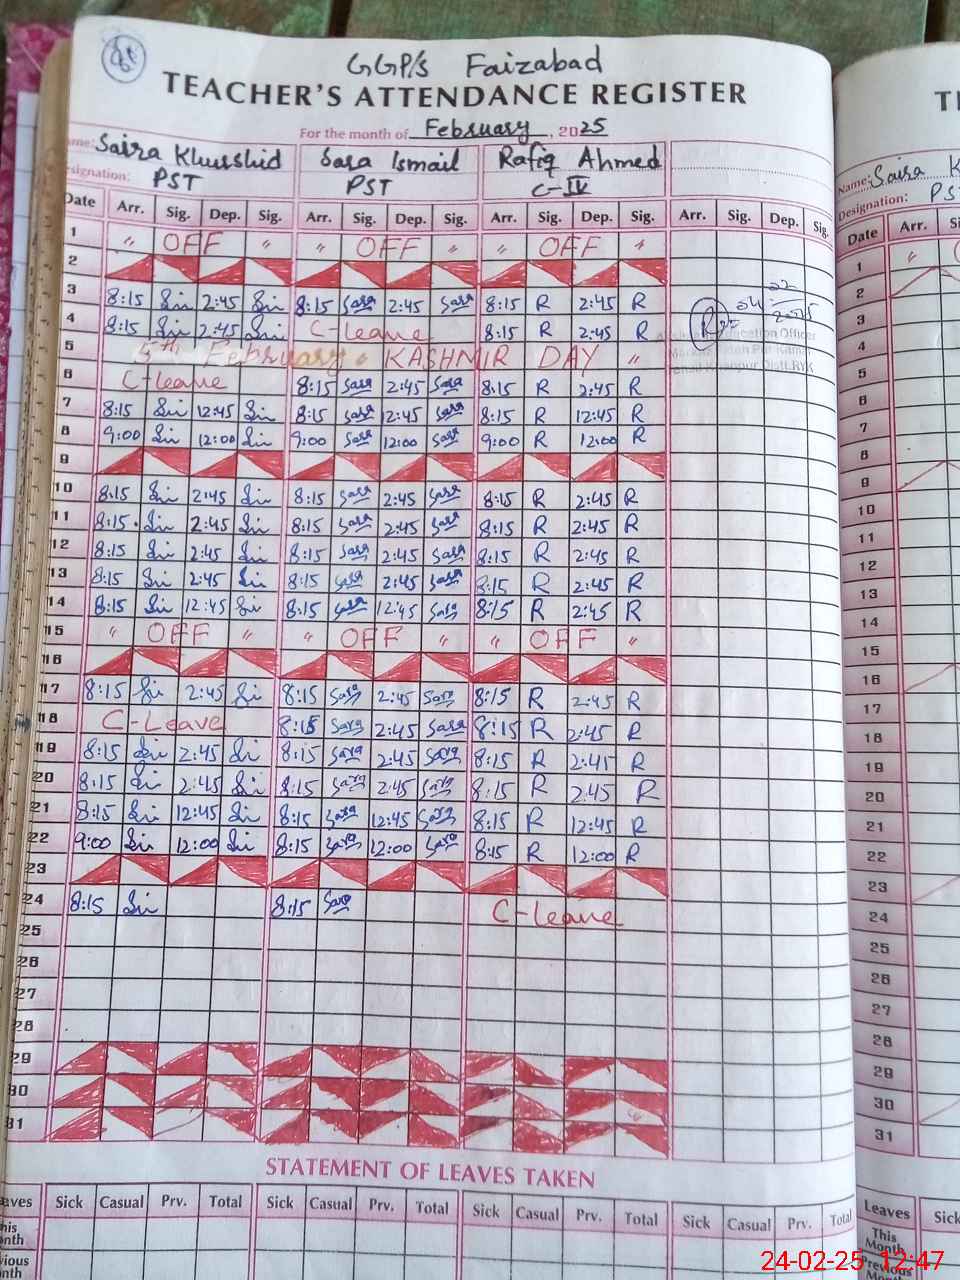 GGP/s Faizabad
TEACHER'S ATTENDANCE REGISTER
For the month of February, 2025
Saira Khurshid Sara Ismail Rafiq Ahmed
Designation: PST PST C-IV
Date Arr. Sig. Dep. Sig. Arr. Sig. Dep. Sig. Arr. Sig. Dep. Sig. Arr. Sig. Dep. Sig.
1 " OFF " " OFF " " OFF "
2
3 8:15 2:45 8:15 Sara 2:45 Sara 8:15 R 2:45 R
4 8:15 2:45 C-leave 8:15 R 2:45 R
5 5th February " KASHMIR DAY "
6 C-leave 8:15 Sara 2:45 Sara 8:15 R 2:45 R
7 8:15 12:45 8:15 Sara 12:45 Sara 8:15 R 12:45 R
8 9:00 12:00 9:00 Sara 12:00 Sara 9:00 R 12:00 R
9
10 8:15 2:45 8:15 Sara 2:45 Sara 8:15 R 2:45 R
11 8:15 2:45 8:15 Sara 2:45 Sara 8:15 R 2:45 R
12 8:15 2:45 8:15 Sara 2:45 Sara 8:15 R 2:45 R
13 8:15 2:45 8:15 Sara 2:45 Sara 8:15 R 2:45 R
14 8:15 12:45 8:15 Sara 12:45 Sara 8:15 R 2:45 R
15 " OFF " " OFF " " OFF "
16
17 8:15 2:45 8:15 Sara 2:45 Sara 8:15 R 2:45 R
18 C-Leave 8:15 Sara 2:45 Sara 8:15 R 2:45 R
19 8:15 2:45 8:15 Sara 2:45 Sara 8:15 R 2:45 R
20 8:15 2:45 8:15 Sara 2:45 Sara 8:15 R 2:45 R
21 8:15 12:45 8:15 Sara 12:45 Sara 8:15 R 12:45 R
22 9:00 12:00 8:15 Sara 12:00 Sara 8:15 R 12:00 R
23
24 8:15 8:15 Sara C-leave
25
26
27
28
29
30
31
STATEMENT OF LEAVES TAKEN
Sick Casual Prv. Total Sick Casual Prv. Total Sick Casual Prv. Total Sick Casual Prv. Total
Name: Saira
Designation:
Date Arr.
1 "
2
3
4
5
6
7
8
9
10
11
12
13
14
15
16
17
18
19
20
21
22
23
24
25
26
27
28
29
30
31
Leaves Sick
This
Month
Previous
24-02-25 12:47